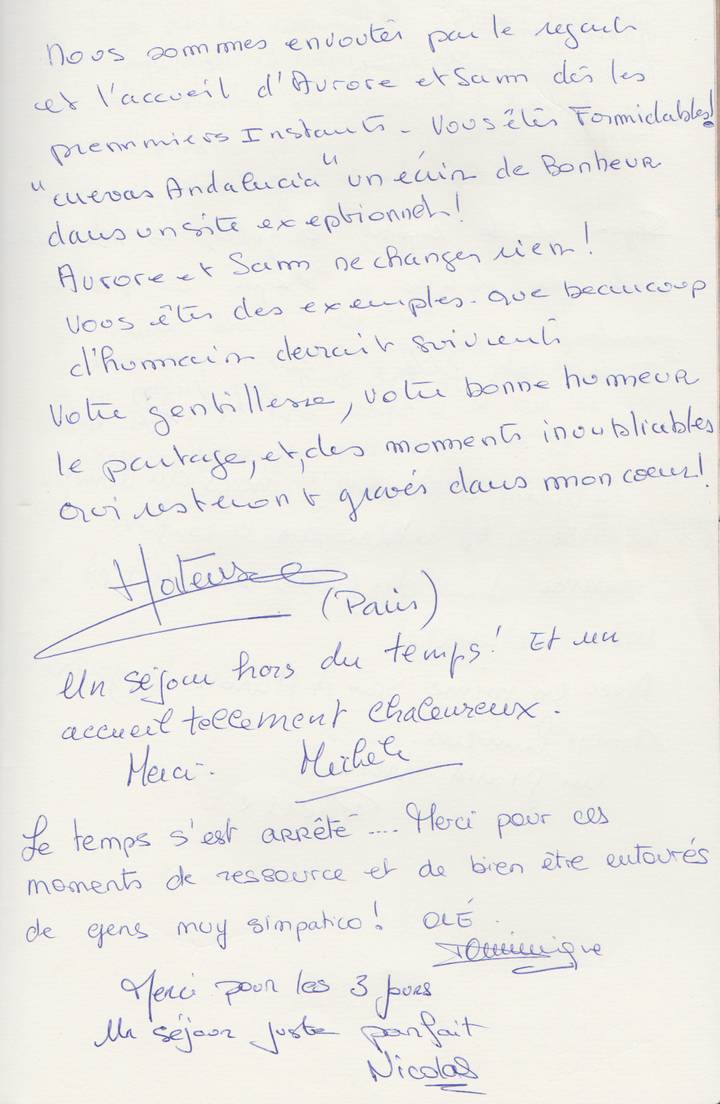 Nous sommes envoutés par le regard
et l'accueil d'Aurore et Sam dès les
premmiers Instants - Vous êtes Formidables!
"cuevas Andalucia" un écrin de Bonheur
dans un site exeptionnel!
Aurore et Sam ne changer rien!
Vous êtes des exemples. que beaucoup
d'humain devrait suivrent
Votre gentillesse, votre bonne humeur
le partage, et, des moments inoubliables
qui resteront gravés dans mon coeur!
(Paris)
Un séjour hors du temps! Et un
accueil tellement chaleureux.
Merci. Michèle
Le temps s'est arrêté .... Merci pour ces
moments de ressource et de bien être entourés
de gens muy simpatico! OLÉ.
Dominique
Merci pour les 3 jours
Un séjour juste parfait
Nicolas